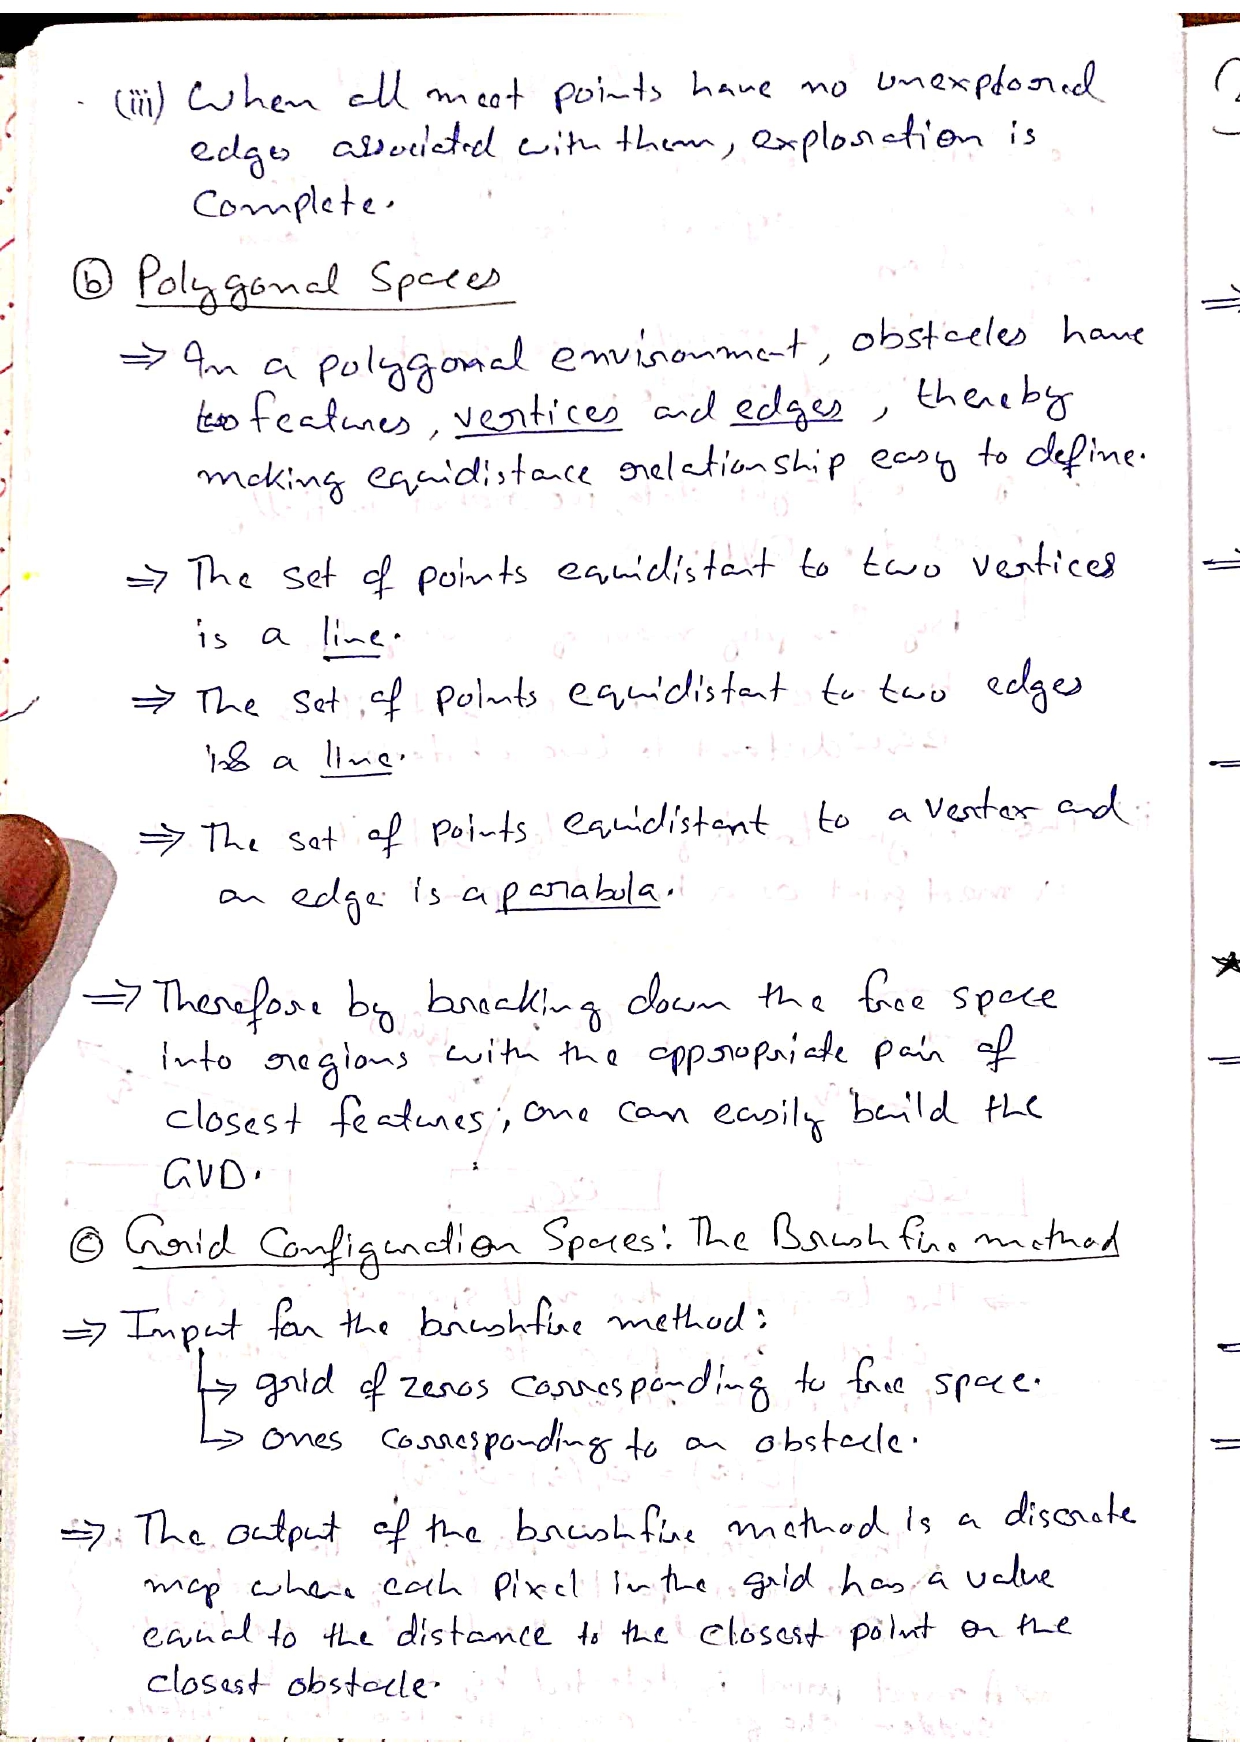 (iii) When all meet points have no unexplored
edges associated with them, exploration is
Complete.
ⓑ Polygonal Spaces
⇒ In a polygonal environment, obstacles have
two features, vertices and edges, thereby
making equidistance relationship easy to define.
⇒ The set of points equidistant to two vertices
is a line.
⇒ The set of points equidistant to two edges
is a line.
⇒ The set of points equidistant to a vertex and
an edge is a parabola.
⇒ Therefore by breaking down the free space
into regions with the appropriate pair of
closest features, one can easily build the
GVD.
ⓒ Grid Configuration Spaces: The Brushfire method
⇒ Input for the brushfire method:
↳ grid of zeros corresponding to free space.
↳ ones corresponding to an obstacle.
⇒ The output of the brushfire method is a discrete
map where each pixel in the grid has a value
equal to the distance to the closest point on the
closest obstacle.